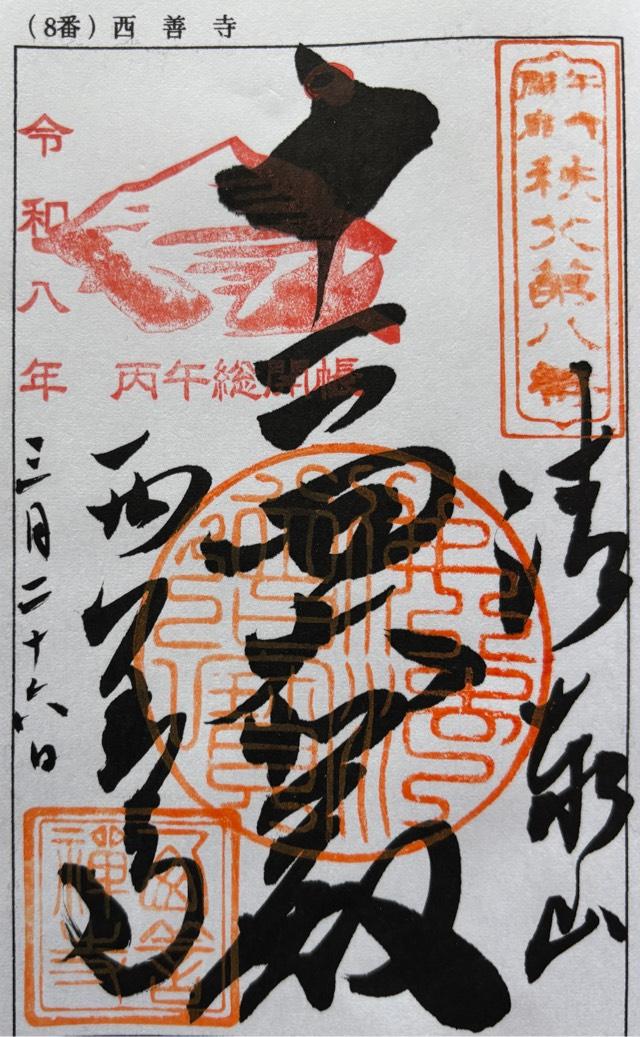 (8番) 西善寺
午歳
開扉
秩父第八番
清泰山
十一面大悲殿
西善寺
令和八年
丙午総開帳
三月二十六日
西善
禅寺